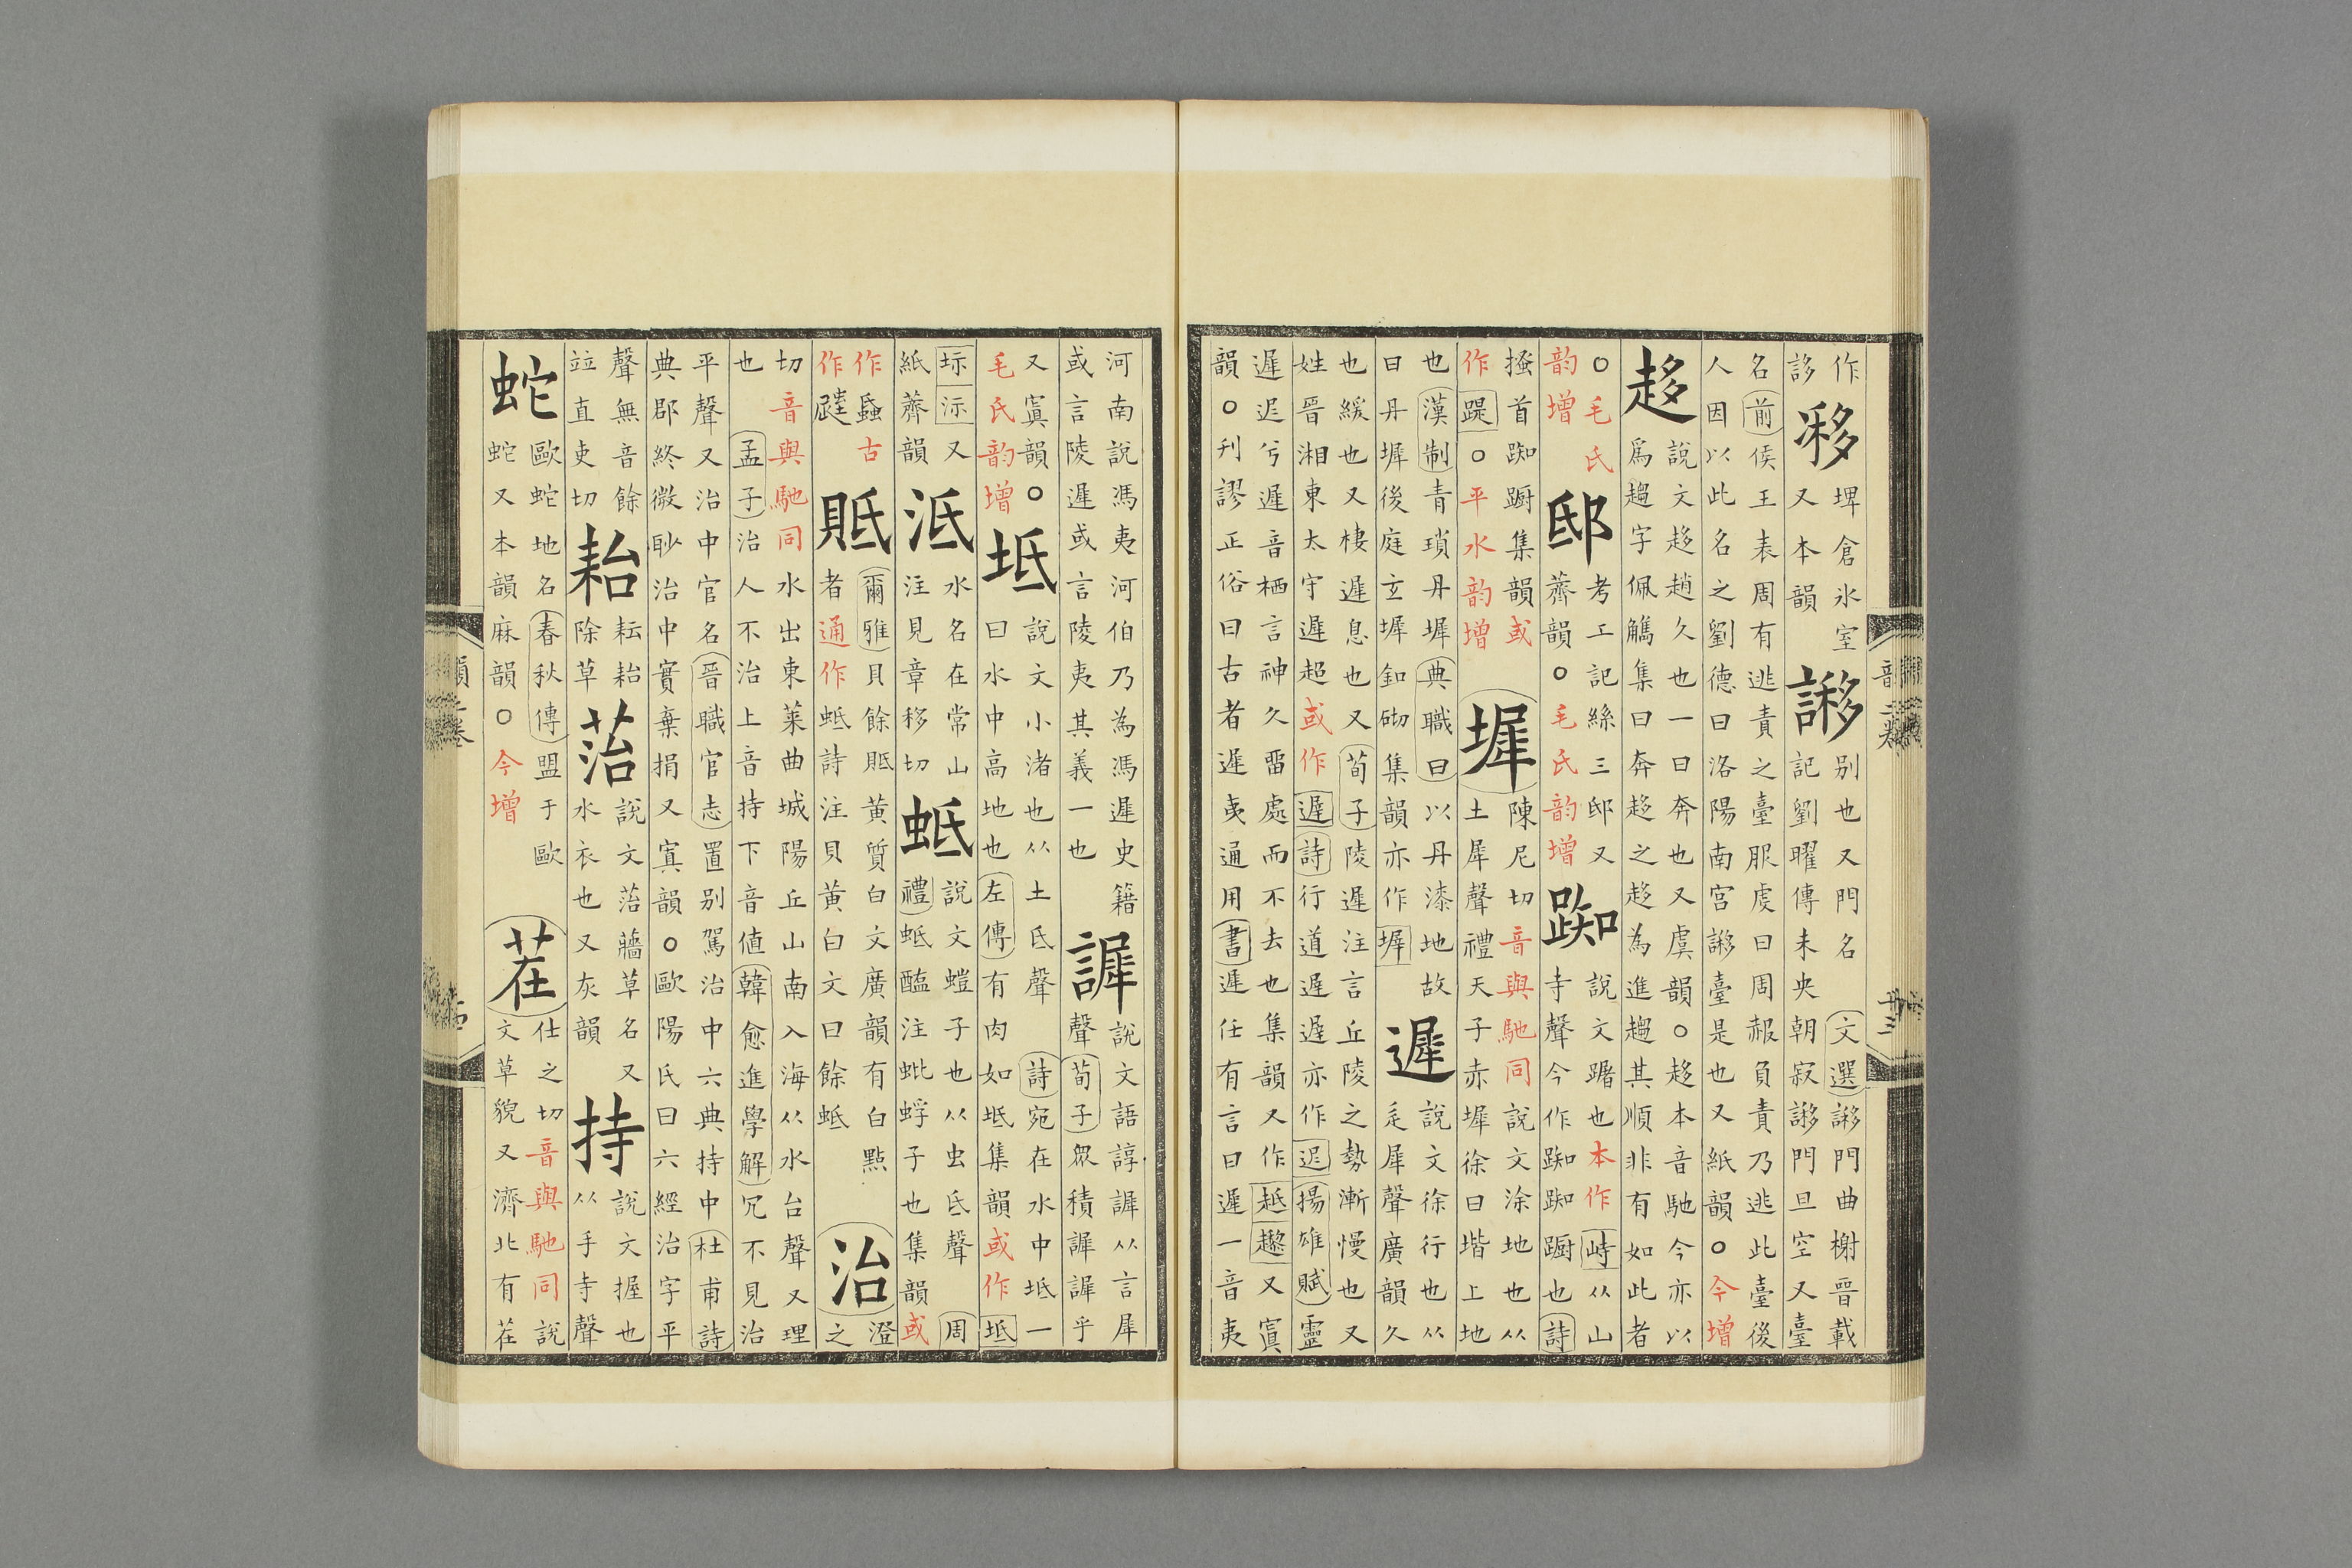 作
誃
𠗺
埤倉氷室
又本韻
謻
别也又門名文選謻門曲榭晉載
記劉曜傳未央朝寂謻門旦空又臺
名前侯王表周有逃責之臺服虔曰周赧負責乃逃此臺後
人因以此名之劉德曰洛陽南宫謻臺是也又紙韻○今增
趍
説文趍趙久也一曰奔也又虞韻○趍本音馳今亦以
爲趨字佩觿集曰奔趍之趍為進趨其順非有如此者
○毛氏
韵增
邸
考工記絲三邸又
薺韻○毛氏韵增
踟
説文躇也本作峙从山
寺聲今作踟踟蹰也詩
搔首踟蹰集韻或
作踶○平水韵增
墀
陳尼切音與馳同説文涂地也从
土犀聲禮天子赤墀徐曰堦上地
也漢制青瑣丹墀典職曰以丹漆地故
曰丹墀後庭玄墀釦砌集韻亦作墀
遲
説文徐行也从
辵犀聲廣韻久
也緩也又棲遲息也又荀子陵遲注言丘陵之勢漸慢也又
姓晉湘東太守遲超或作遲詩行道遲遲亦作迡揚雄賦靈
遲迡兮遲音栖言神久畱處而不去也集韻又作又寘
韻○刋謬正俗曰古者遲夷通用書遲任有言曰遲一音夷
河南説馮夷河伯乃為馮遲史籍
或言陵遲或言陵夷其義一也
謘
説文語諄謘从言犀
聲荀子眾積謘謘乎
又寘韻○
毛氏韵增
坻
説文小渚也从土氐聲詩宛在水中坻一
曰水中高地也左傳有肉如坻集韻或作坻
坛沶又
紙薺韻
泜
水名在常山
注見章移切
蚳
説文螘子也从虫氐聲周
禮蚳醢注蚍蜉子也集韻或
作䗩古
作
貾
爾雅貝餘貾黄質白文廣韻有白點
者通作蚳詩注貝黄白文曰餘蚳
治
澄
之
切音與馳同水出東萊曲城陽丘山南入海从水台聲又理
也孟子治人不治上音持下音値韓愈進學解冗不見治
平聲又治中官名晉職官志置别駕治中六典持中杜甫詩
典郡終微眇治中實棄捐又寘韻○歐陽氏曰六經治字平
聲無音餘
竝直吏切
耛
耘耛
除草
菭
説文菭蘠草名又
水衣也又灰韻
持
説文握也
从手寺聲
蛇
歐蛇地名春秋傳盟于歐
蛇又本韻麻韻○今增
茬
仕之切音與馳同説
文草貌又濟北有茬